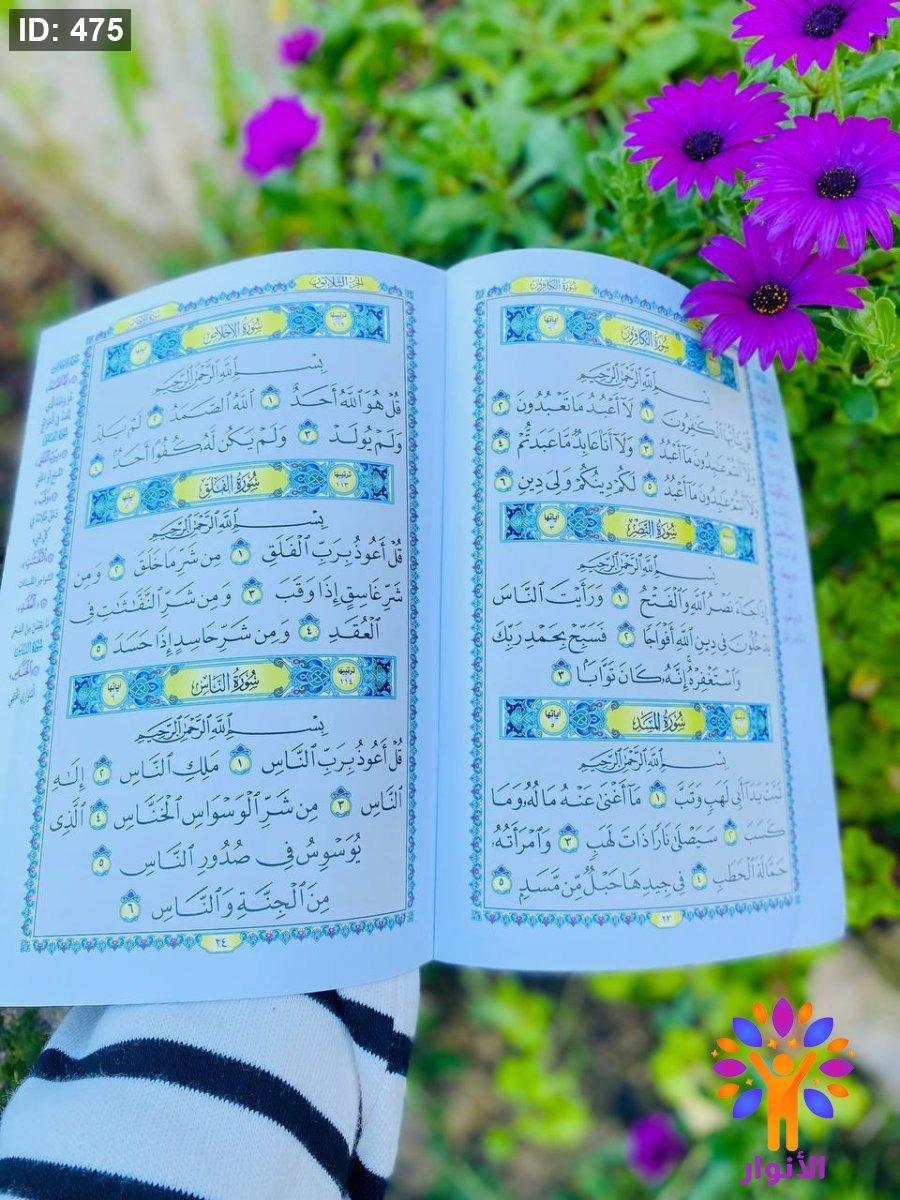 ID: 475
سورة الكافرون
سُورَةُ الكافِرُون
آياتها
بِسْمِ اللَّهِ الرَّحْمَٰنِ الرَّحِيمِ
قُلْ يَٰٓأَيُّهَا ٱلْكَٰفِرُونَ ١ لَآ أَعْبُدُ مَا تَعْبُدُونَ ٢
وَلَآ أَنتُمْ عَٰبِدُونَ مَآ أَعْبُدُ ٣ وَلَآ أَنَا۠ عَابِدٌ مَّا عَبَدتُّمْ ٤
وَلَآ أَنتُمْ عَٰبِدُونَ مَآ أَعْبُدُ ٥ لَكُمْ دِينُكُمْ وَلِىَ دِينِ ٦
سُورَةُ النَّصْرِ
آياتها ٣
بِسْمِ اللَّهِ الرَّحْمَٰنِ الرَّحِيمِ
إِذَا جَآءَ نَصْرُ ٱللَّهِ وَٱلْفَتْحُ ١ وَرَأَيْتَ ٱلنَّاسَ
يَدْخُلُونَ فِى دِينِ ٱللَّهِ أَفْوَاجًا ٢ فَسَبِّحْ بِحَمْدِ رَبِّكَ
وَٱسْتَغْفِرْهُ إِنَّهُۥ كَانَ تَوَّابًۢا ٣
سُورَةُ المَسَد
آياتها ٥
بِسْمِ اللَّهِ الرَّحْمَٰنِ الرَّحِيمِ
تَبَّتْ يَدَآ أَبِى لَهَبٍ وَتَبَّ ١ مَآ أَغْنَىٰ عَنْهُ مَالُهُۥ وَمَا
كَسَبَ ٢ سَيَصْلَىٰ نَارًا ذَاتَ لَهَبٍ ٣ وَٱمْرَأَتُهُۥ
حَمَّالَةَ ٱلْحَطَبِ ٤ فِى جِيدِهَا حَبْلٌ مِّن مَّسَدٍۭ ٥
٢٣
الجزء الثلاثون
سُورَةُ الإخْلَاص
ترتيبها ١١٢
آياتها
بِسْمِ اللَّهِ الرَّحْمَٰنِ الرَّحِيمِ
قُلْ هُوَ ٱللَّهُ أَحَدٌ ١ ٱللَّهُ ٱلصَّمَدُ ٢ لَمْ يَلِدْ
وَلَمْ يُولَدْ ٣ وَلَمْ يَكُن لَّهُۥ كُفُوًا أَحَدٌۢ ٤
سُورَةُ الفَلَق
ترتيبها ١١٣
آياتها
بِسْمِ اللَّهِ الرَّحْمَٰنِ الرَّحِيمِ
قُلْ أَعُوذُ بِرَبِّ ٱلْفَلَقِ ١ مِن شَرِّ مَا خَلَقَ ٢ وَمِن
شَرِّ غَاسِقٍ إِذَا وَقَبَ ٣ وَمِن شَرِّ ٱلنَّفَّٰثَٰتِ فِى
ٱلْعُقَدِ ٤ وَمِن شَرِّ حَاسِدٍ إِذَا حَسَدَ ٥
سُورَةُ النَّاس
ترتيبها ١١٤
آياتها
بِسْمِ اللَّهِ الرَّحْمَٰنِ الرَّحِيمِ
قُلْ أَعُوذُ بِرَبِّ ٱلنَّاسِ ١ مَلِكِ ٱلنَّاسِ ٢ إِلَٰهِ
ٱلنَّاسِ ٣ مِن شَرِّ ٱلْوَسْوَاسِ ٱلْخَنَّاسِ ٤ ٱلَّذِى
يُوَسْوِسُ فِى صُدُورِ ٱلنَّاسِ ٥
مِنَ ٱلْجِنَّةِ وَٱلنَّاسِ ٦
٢٤
الأنوار